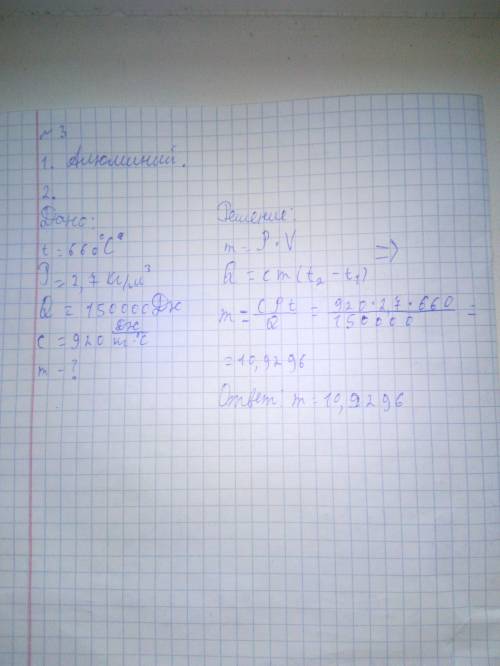 № 3
1. Алюминий.
2.
Дано:
t = 660°C°
P = 2,7 кг/м³
Q = 150000 Дж
c = 920 Дж/кг·°C
m - ?
Решение:
m = P · V
Q = cm(t₂ - t₁) =>
m = cPt/Q = 920·2,7·660/150000 =
= 10,9296
Ответ: m = 10,9296